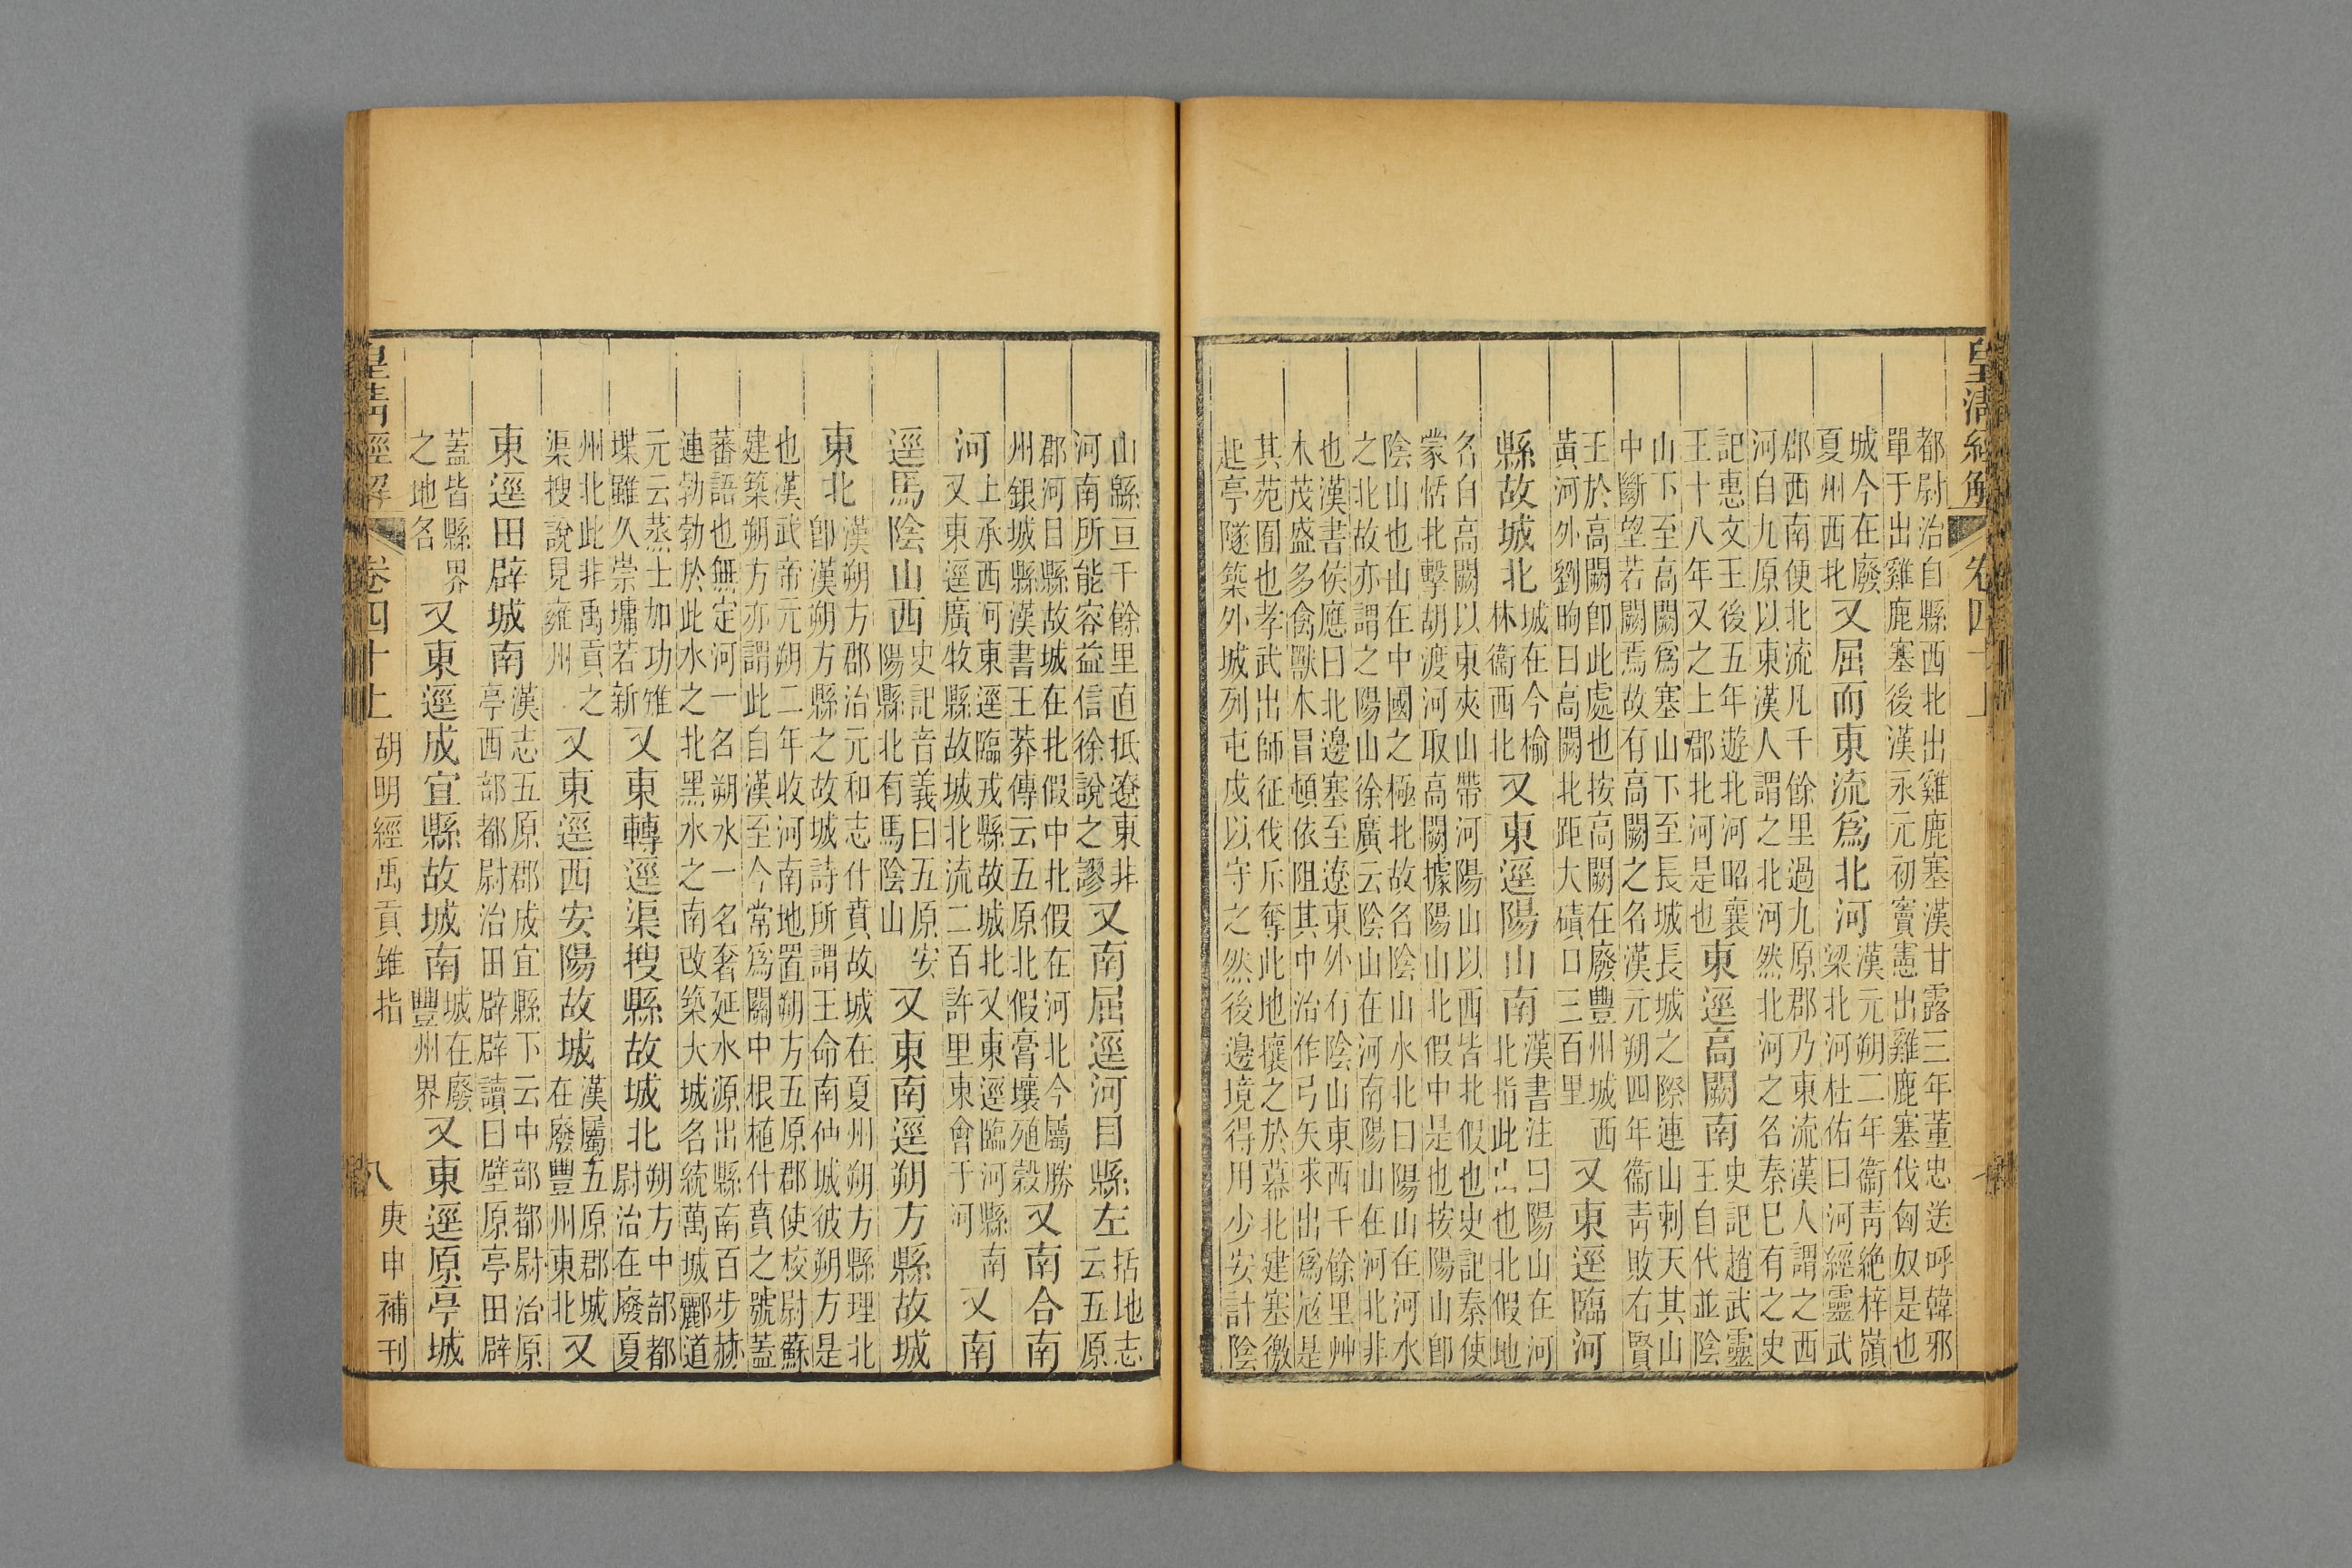 皇清經解 卷四十上
都尉治自縣西北出雞鹿塞漢甘露三年董忠送呼韓邪
單于出雞鹿塞後漢永元初竇憲出雞鹿塞伐匈奴是也
城今在廢
夏州西北
又屈而東流爲北河
漢元朔二年衞靑絶梓嶺
梁北河杜佑曰河經靈武
郡西南便北流凡千餘里過九原郡乃東流漢人謂之西
河自九原以東漢人謂之北河然北河之名秦巳有之史
記惠文王後五年遊北河昭襄
王十八年又之上郡北河是也
東逕高闕南
史記趙武靈
王自代並陰
山下至高闕爲塞山下至長城長城之際連山刺天其山
中斷望若闕焉故有高闕之名漢元朔四年衞靑敗右賢
王於高闕卽此處也按高闕在廢豐州城西
黃河外劉昫曰高闕北距大磧口三百里
又東逕臨河
縣故城北
城在今榆
林衞西北
又東逕陽山南
漢書注曰陽山在河
北指此山也北假地
名自高闕以東夾山帶河陽山以西皆北假也史記秦使
蒙恬北擊胡渡河取高闕據陽山北假中是也按陽山卽
陰山也山在中國之極北故名陰山水北曰陽山在河水
之北故亦謂之陽山徐廣云陰山在河南陽山在河北非
也漢書侯應曰北邊塞至遼東外有陰山東西千餘里艸
木茂盛多禽獸本冒頓依阻其中治作弓矢來出爲寇是
其苑囿也孝武出師征伐斥奪此地攘之於幕北建塞徼
起亭隧築外城列屯戍以守之然後邊境得用少安計陰
山緜亙千餘里直抵遼東非
河南所能容益信徐說之謬
又南屈逕河目縣左
括地志
云五原
郡河目縣故城在北假中北假在河北今屬勝
州銀城縣漢書王莽傳云五原北假膏壤殖穀
又南合南
河
上承西河東逕臨戎縣故城北又東逕臨河縣南
又東逕廣牧縣故城北流二百許里東會于河
又南
逕馬陰山西
史記音義曰五原安
陽縣北有馬陰山
又東南逕朔方縣故城
東北
漢朔方郡治元和志什賁故城在夏州朔方縣理北
卽漢朔方縣之故城詩所謂王命南仲城彼朔方是
也漢武帝元朔二年收河南地置朔方五原郡使校尉蘇
建築朔方亦謂此自漢至今常爲關中根柢什賁之號蓋
蕃語也無定河一名朔水一名奢延水源出縣南百步赫
連勃勃於此水之北黑水之南改築大城名統萬城酈道
元云蒸土加功雉
堞雖久崇墉若新
又東轉逕渠搜縣故城北
朔方中部都
尉治在廢夏
州北此非禹貢之
渠搜說見雍州
又東逕西安陽故城
漢屬五原郡城
在廢豐州東北
又
東逕田辟城南
漢志五原郡成宜縣下云中部都尉治原
亭西部都尉治田辟辟讀曰壁原亭田辟
蓋皆縣界
之地名
又東逕成宜縣故城南
城在廢
豐州界
又東逕原亭城
皇清經解 卷四十上 胡明經禹貢錐指 八 庚申補刊